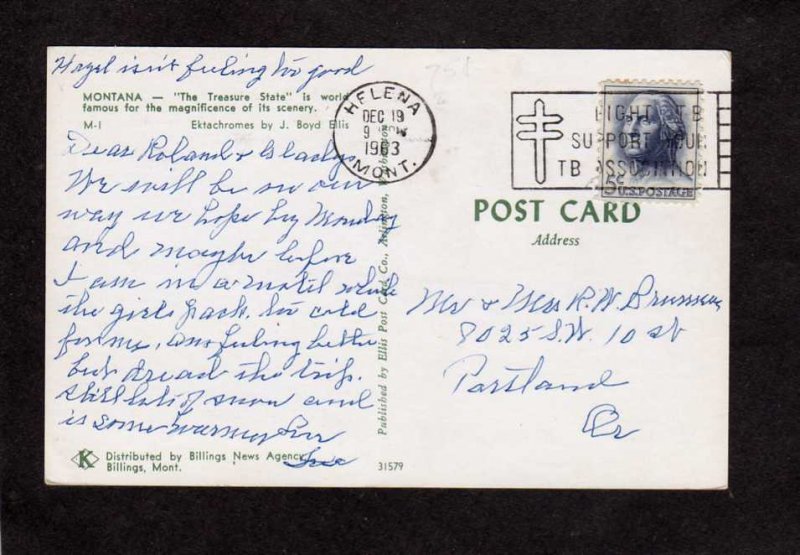 Hazel isn't feeling too good
MONTANA — "The Treasure State" is world
famous for the magnificence of its scenery.
M-1 Ektachromes by J. Boyd Ellis
Dear Roland & Gladys
We will be on our
way we hope by Monday
and maybe before
I am in a motel while
the girls pack. too cold
for me, am feeling better
but dread the trip.
Still lots of snow and
is some warmer
Distributed by Billings News Agency
Billings, Mont.
31579
Published by Ellis Post Card Co., Arlington, Washington
HELENA
DEC 19
9
1963
MONT.
FIGHT TB
SUPPORT YOUR
TB ASSOCIATION
5c U.S. POSTAGE
POST CARD
Address
Mr & Mrs R.W.
8025 S.W. 10 st
Portland
Or